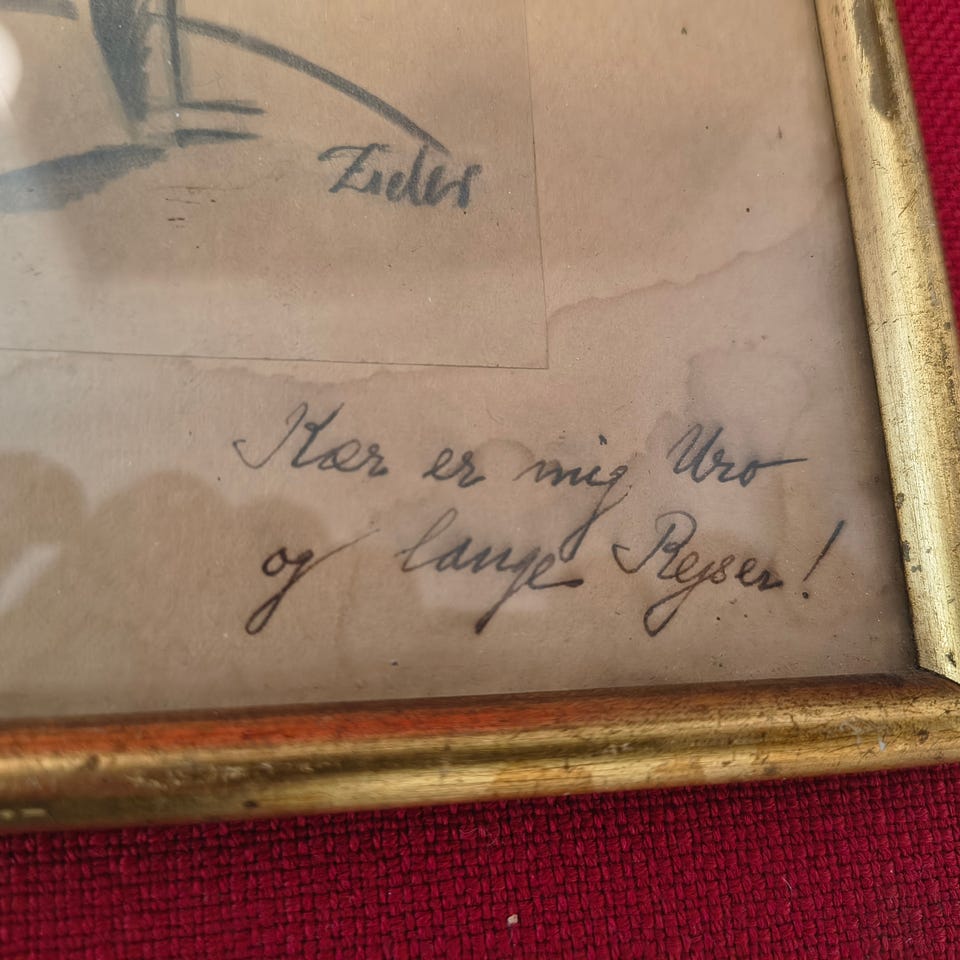 Kær er mig Uro
og lange Rejser!